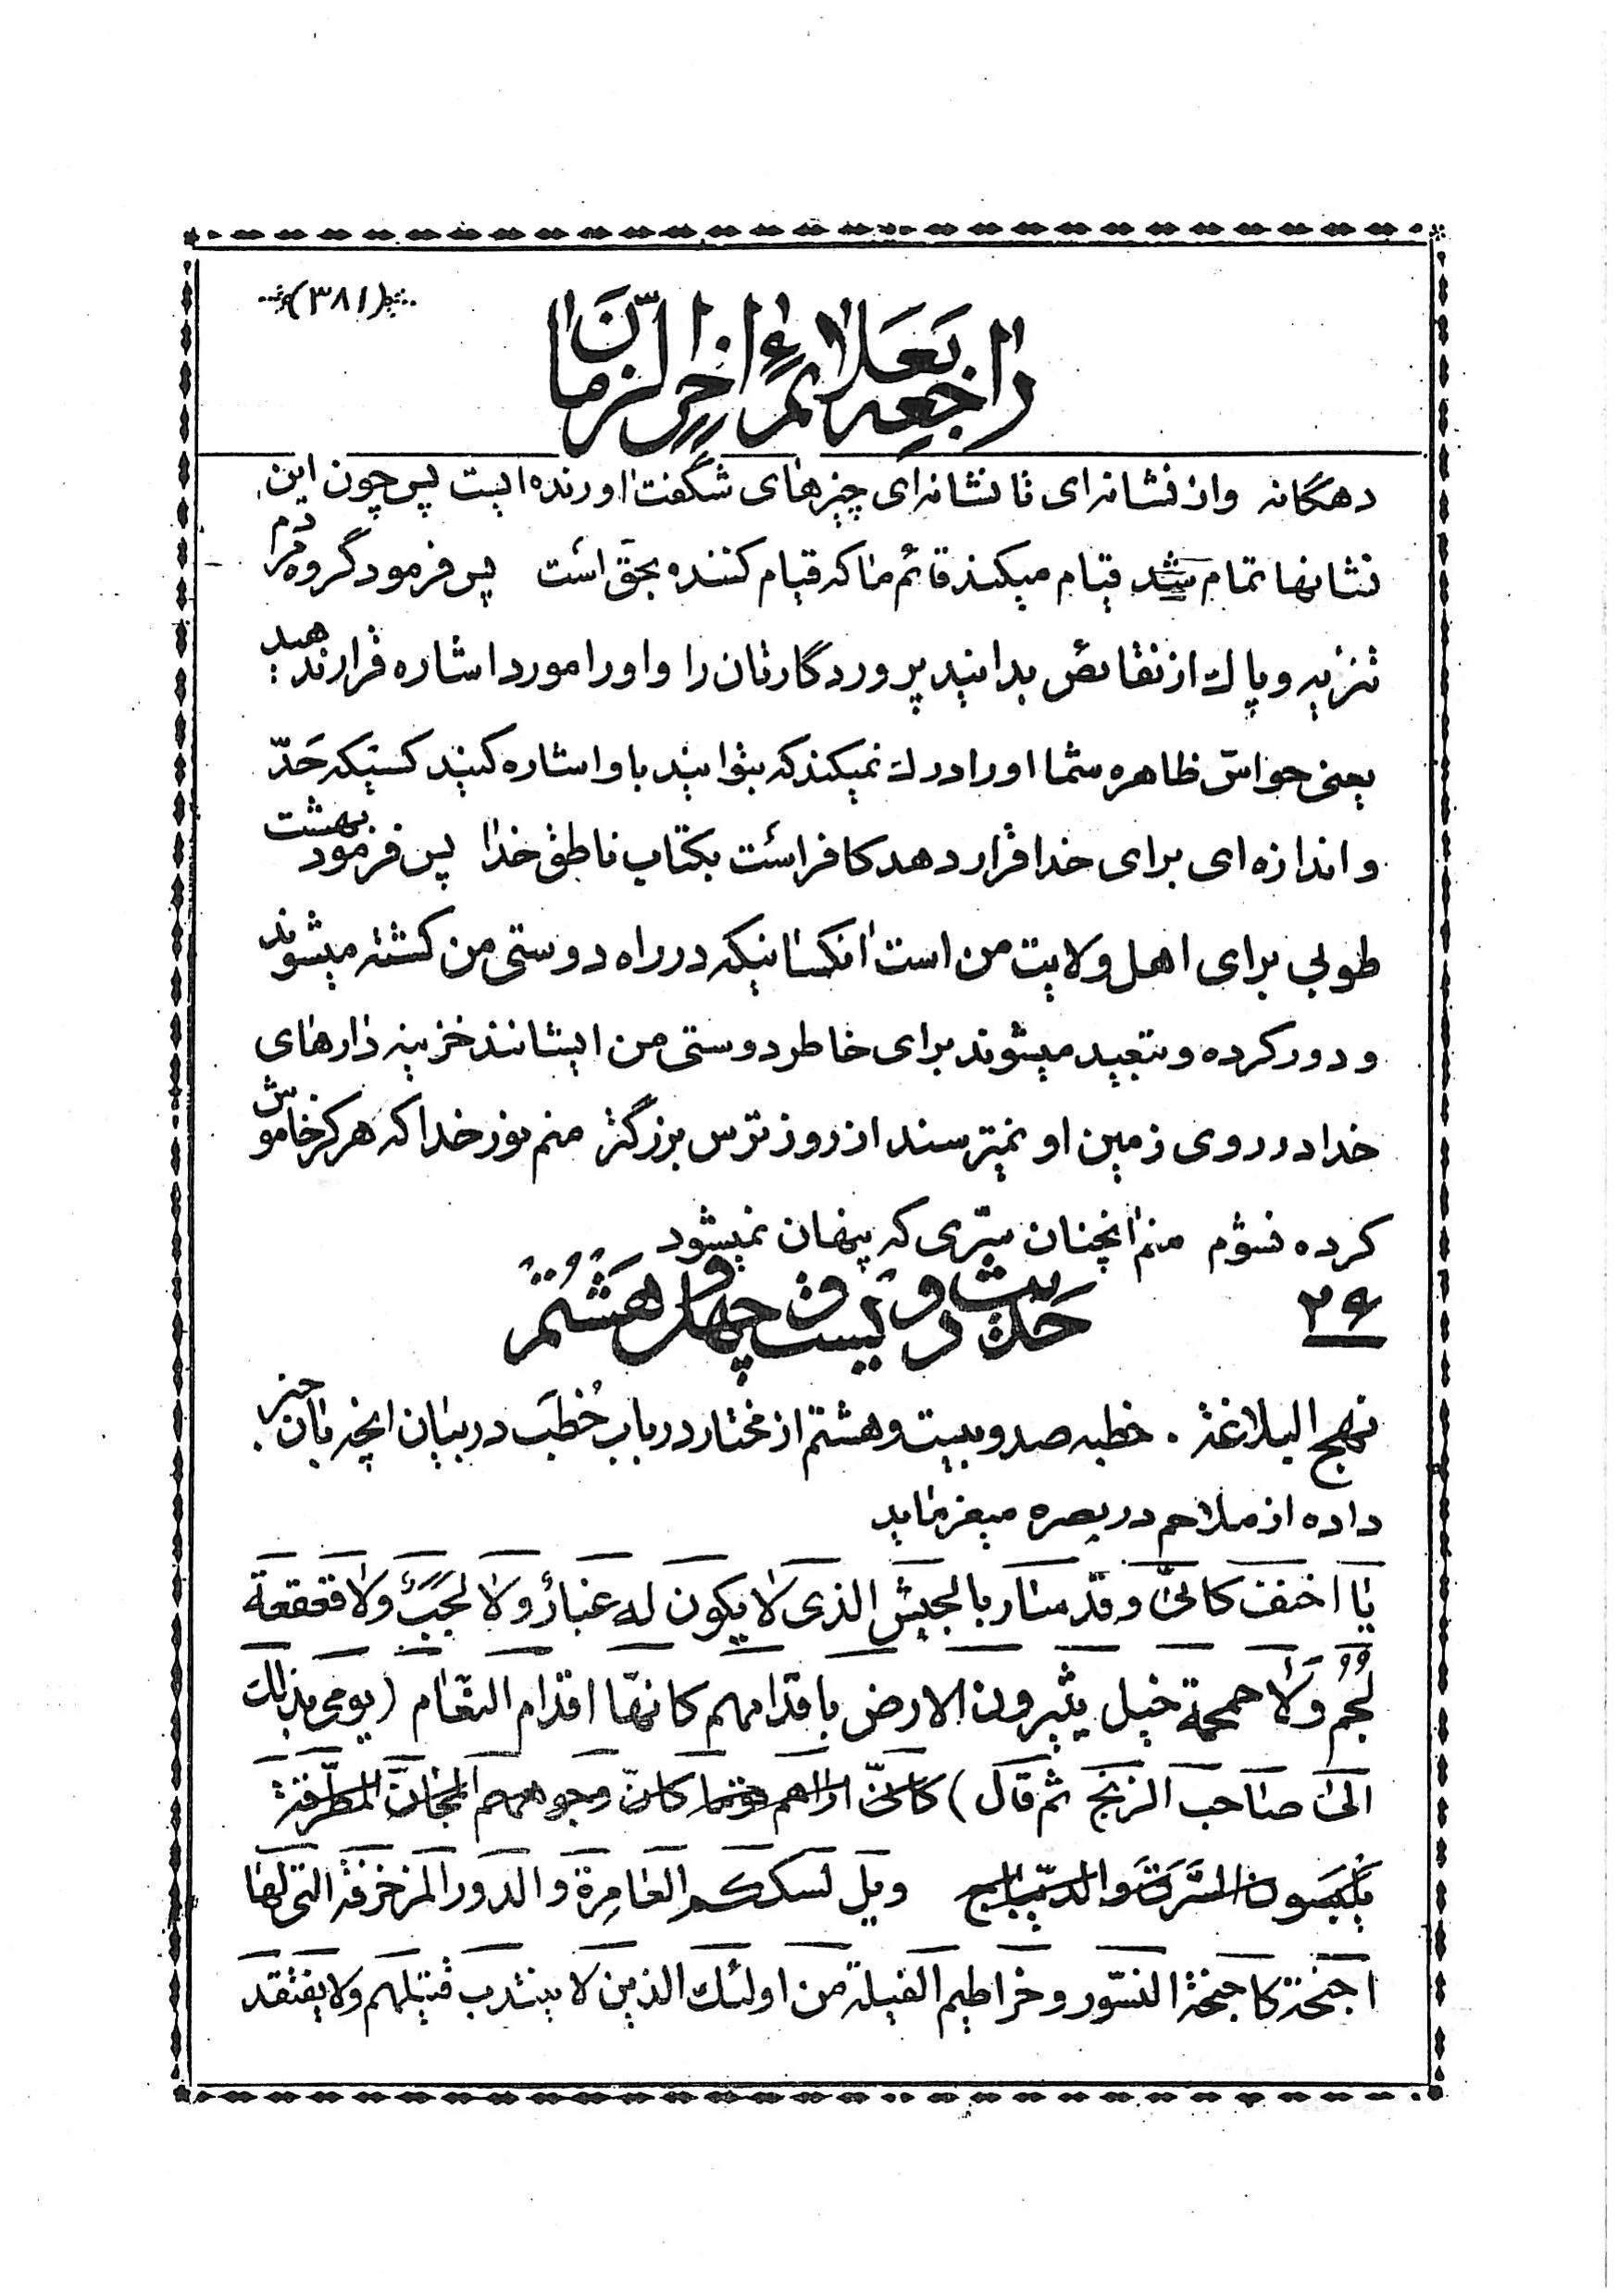 (۳۸۱)
راجعه بعلائم اخر الزمان
دهگانه واز نشانه‌ای تا نشانه‌ای چیزهای شگفت اورنده ایست پس چون این
نشانها تمام شد قیام میکند قائم ما که قیام کننده بحق است پس فرمود گروه مردم
تنزیه و پاک از نقائص بدانید پروردگارتان را و او را مورد اشاره قرار ندهید
یعنی حواس ظاهره شما او را درک نمیکند که بتوانید باو اشاره کنید کسیکه حدّ
و اندازه‌ای برای خدا قرار دهد کافر است بکتاب ناطق خدا پس فرمود بهشت
طوبی برای اهل ولایت من است انکسانیکه در راه دوستی من کشته میشوند
و دور کرده و تبعید میشوند برای خاطر دوستی من ایشانند خزینه دارهای
خدا در روی زمین او نمیترسند از روز ترس بزرگتر منم نور خدا که هرگز خاموش
کرده نشوم منم انچنان سرّی که پنهان نمیشود
۲۶ حدیث دویست و چهل و هشتم
نهج البلاغة . خطبه صد و بیست و هشتم از مختار در باب خُطَب در بیان انچه بان خبر
داده از ملاحم در بصره میفرماید
یا احنف کانّی و قد سار بالجیش الذی لا یکون له غبارٌ و لا لجبٌ ولا قعقعة
لُجُم وَلا حمحمة خیل یثیرون الارض باقدامهم کانها اقدام النّعام (یومی بذلک
الی صاحب الزنج ثم قال) کانّی اراهم قوما کانّ وجوههم المجانّ المطرّقة
یلبسون السَّرَقَ والدّیباج ویل لسککم العامرة و الدور المزخرفة التی لها
اجنحة کاجنحة النسّور و خراطیم الفیلة من اولئک الذین لا ینتدب قتیلهم ولا یفتقد